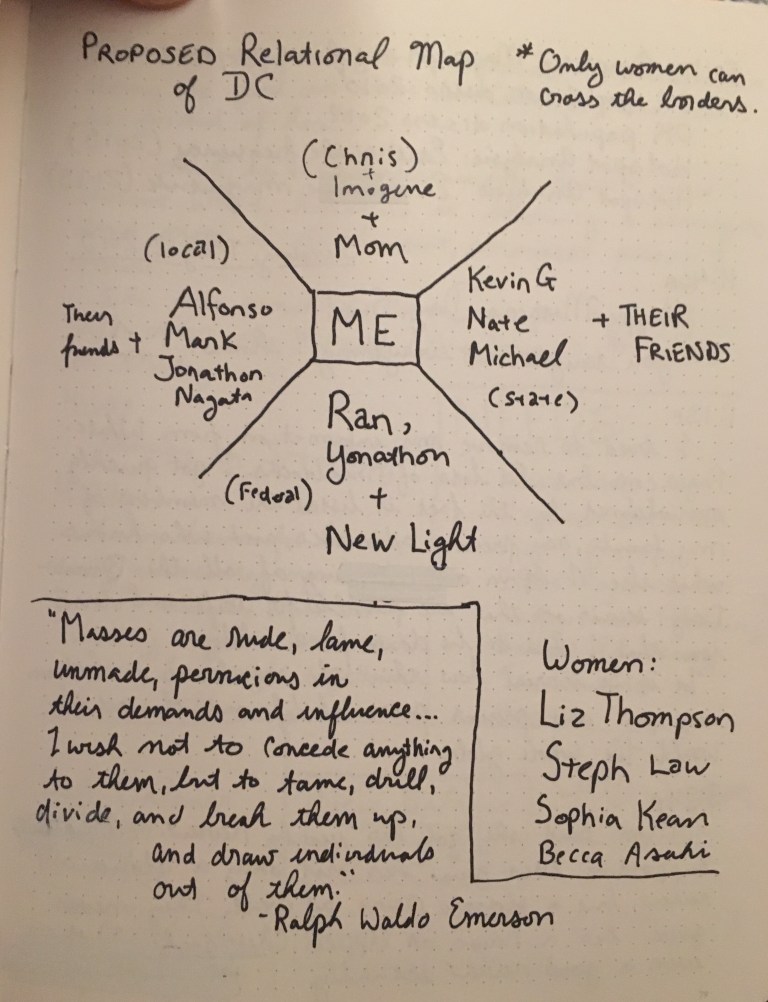 PROPOSED Relational Map
of DC
* Only women can
cross the borders.
(Chris)
+
Imogene
+
Mom
(local)
Their
friends +
Alfonso
Mark
Jonathon
Nagata
ME
Kevin G
Nate
Michael
(state)
+ THEIR
FRIENDS
Ran,
Yonathon
+
New Light
(Federal)
"Masses are rude, lame,
unmade, pernicious in
their demands and influence...
I wish not to concede anything
to them, but to tame, drill,
divide, and break them up,
and draw individuals
out of them."
-Ralph Waldo Emerson
Women:
Liz Thompson
Steph Law
Sophia Kean
Becca Asaki